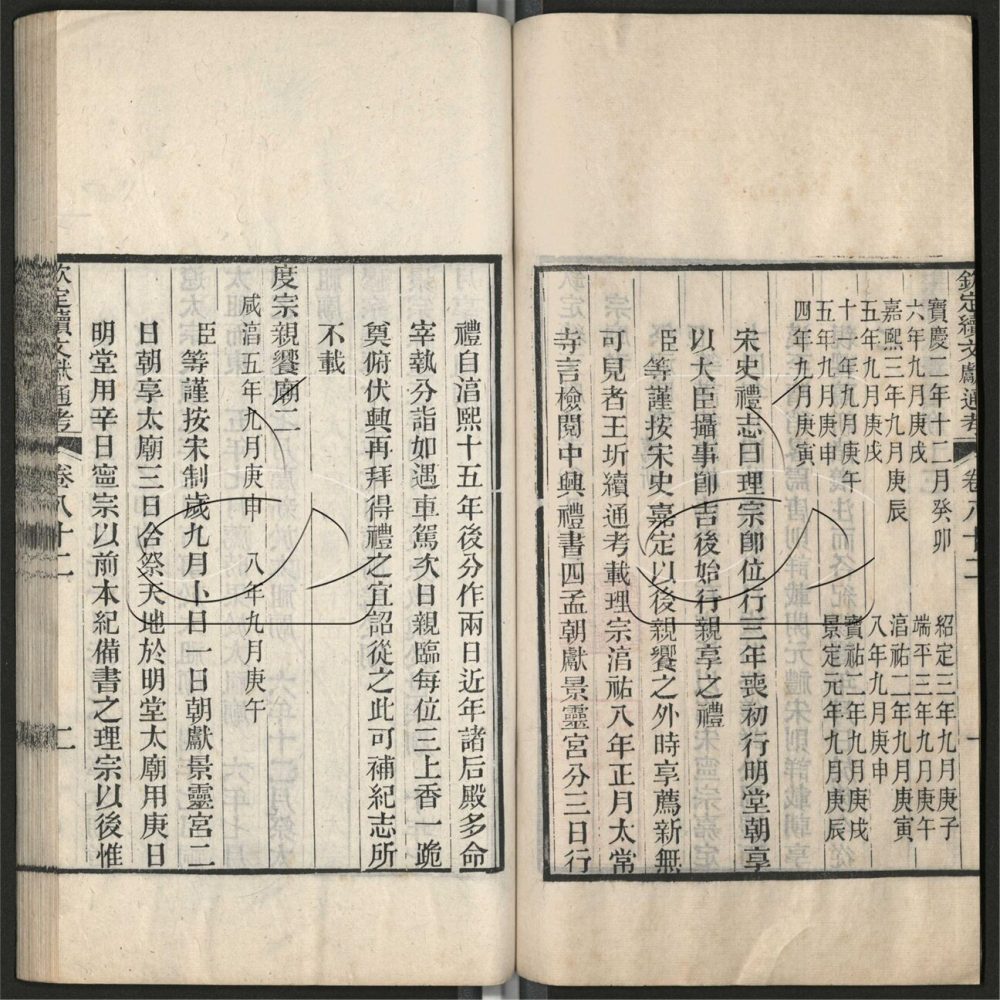 欽定續文獻通考 卷八十二 一
寶慶二年十二月癸卯 紹定三年九月庚子
六年九月庚戌 端平三年九月庚午
嘉熙三年九月庚辰 淯祐二年九月庚寅
五年九月庚戌 八年九月庚申
十一年九月庚午 寶祐二年九月庚戌
五年九月庚申 景定元年九月庚辰
四年九月庚寅
宋史禮志曰理宗卽位行三年喪初行明堂朝享
以大臣攝事卽吉後始行親享之禮
臣等謹按宋史嘉定以後親饗之外時享薦新無
可見者王圻續通考載理宗淯祐八年正月太常
寺言檢閱中興禮書四孟朝獻景靈宮分三日行
禮自淯熙十五年後分作兩日近年諸后殿多命
宰執分詣如遇車駕次日親臨每位三上香一跪
奠俯伏興再拜得禮之宜詔從之此可補紀志所
不載
度宗親饗廟二
咸淯五年九月庚申 八年九月庚午
臣等謹按宋制歲九月卜日一日朝獻景靈宮二
日朝享太廟三日合祭天地於明堂太廟用庚日
明堂用辛日寧宗以前本紀備書之理宗以後惟
欽定續文獻通考 卷八十二 二